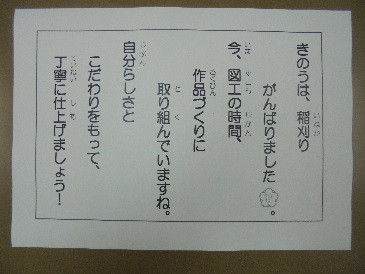 きのうは、稲刈り
がんばりました。
今、図工の時間、
作品づくりに
取り組んでいますね。
自分らしさと
こだわりをもって、
丁寧に仕上げましょう！